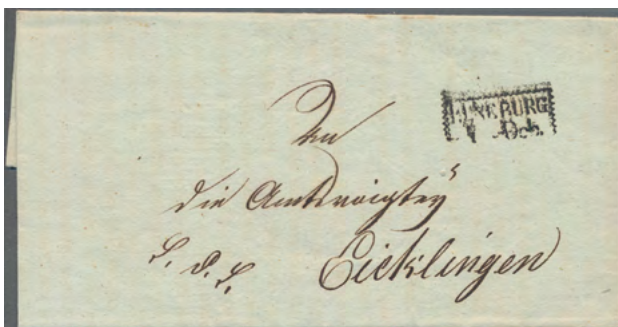 LÜNEBURG
Dcb.
An
die Amtsvoigtey
Eicklingen